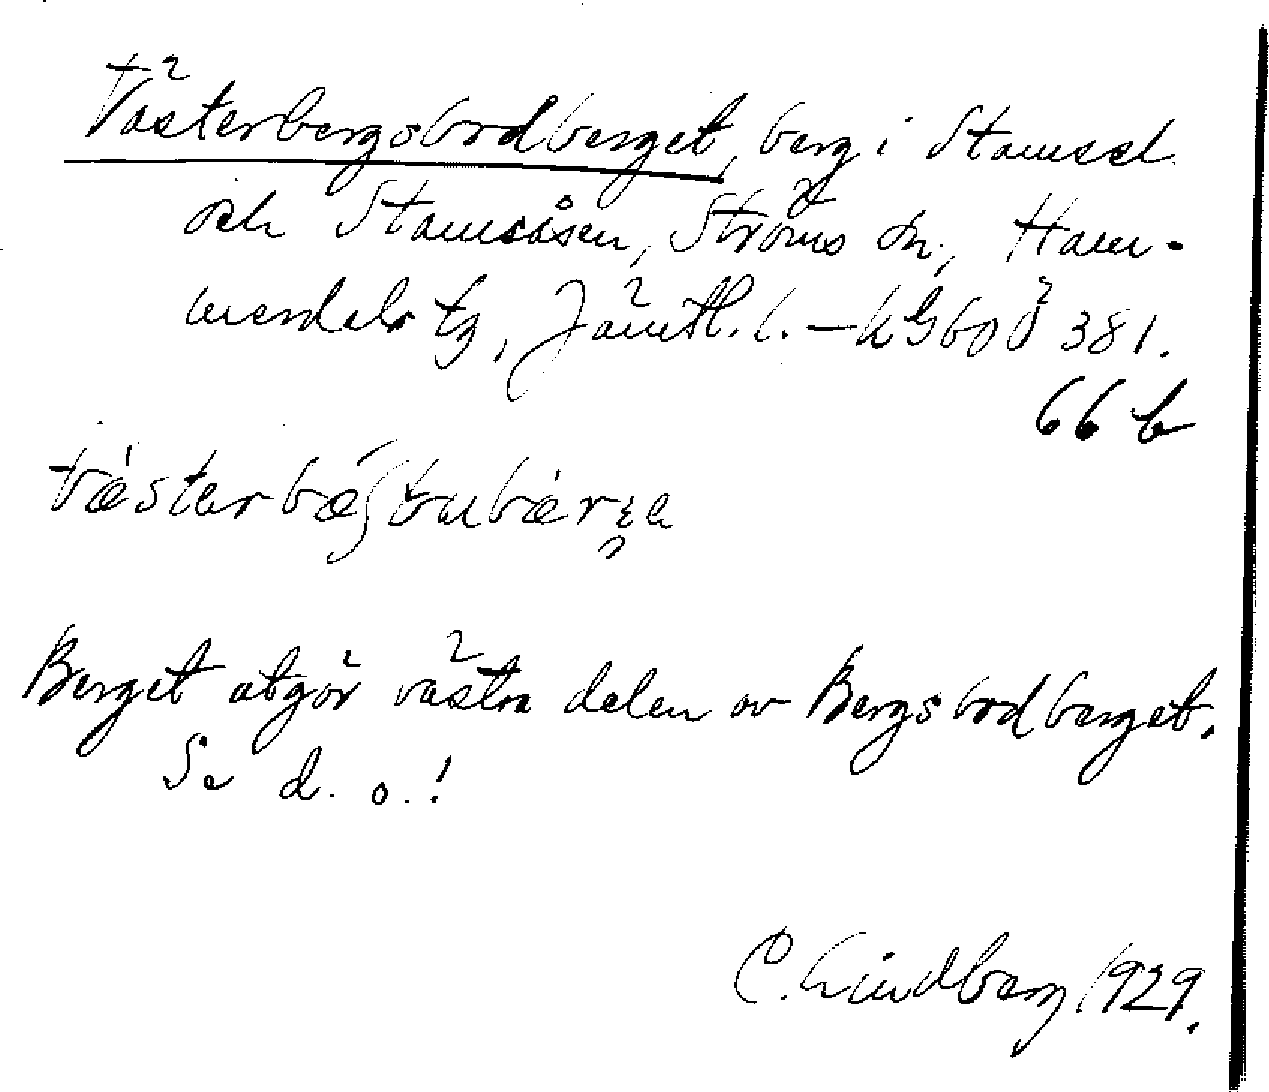 Västerbergsbodberget, berg i Stamsel
och Stamsåsen, Ströms sn, Ham-
merdals tg, Jämtl. l. – kGbOÖ 381.
66 b
Berget utgör västra delen av Bergsbodberget.
Se d. o.!
C. Lindberg 1929.